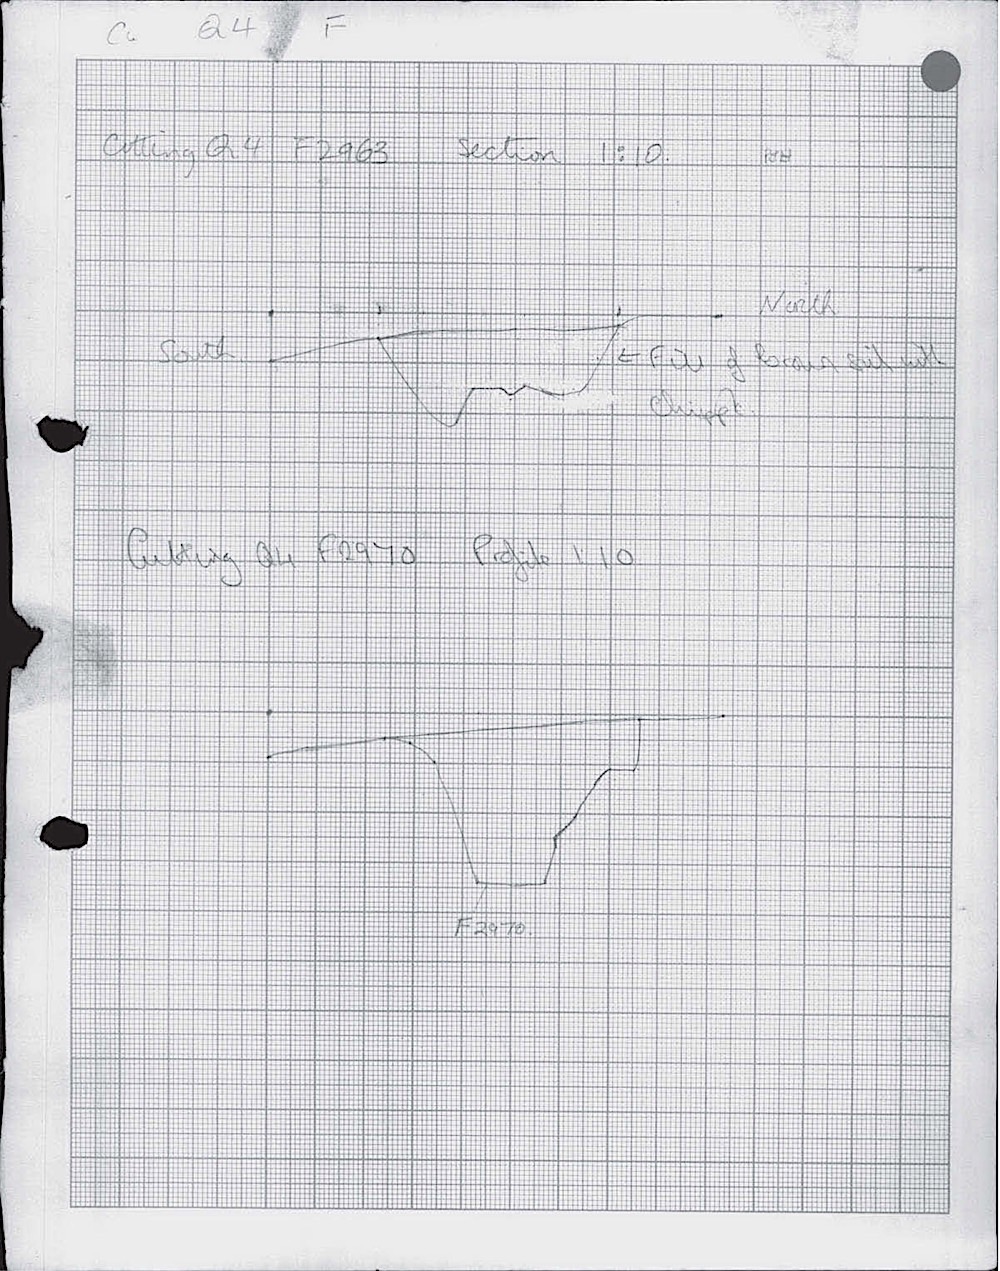 Cu Q4 F
Cutting Q4 F2963 Section 1:10.
North
South
← Fill of brown soil with
Cutting Q4 F2970 Profile 1:10
F2970.